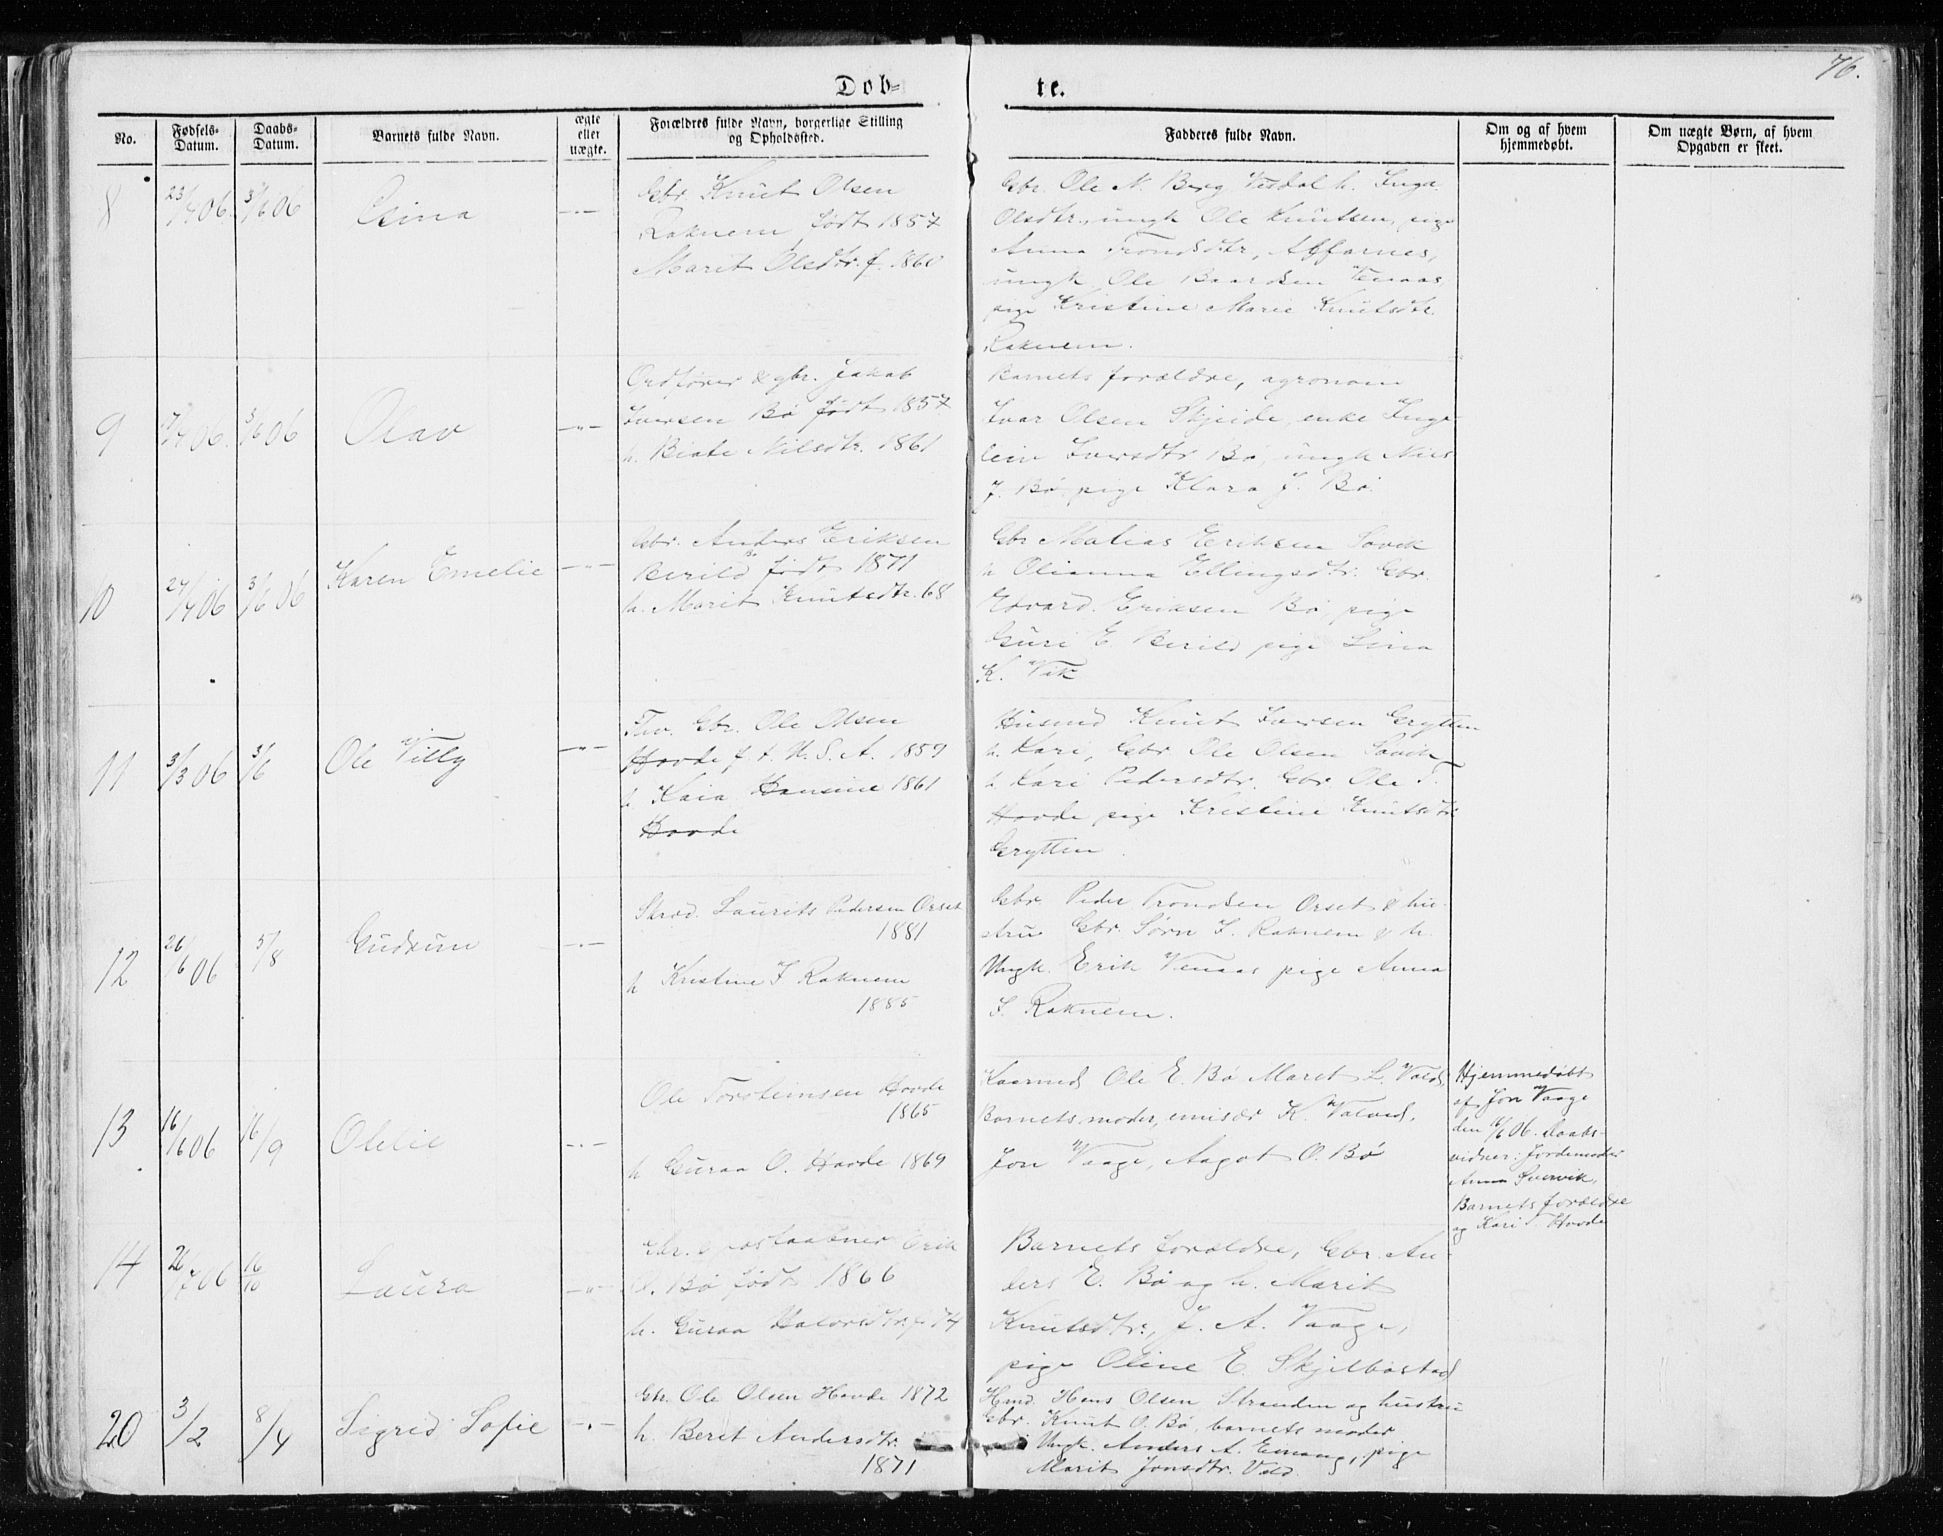 76.
Døb= te.
No.
Fødsels=
Datum.
Daabs=
Datum.
Barnets fulde Navn.
ægte
eller
uægte.
Forældres fulde Navn, borgerlige Stilling
og Opholdssted.
Fadderes fulde Navn.
Om og af hvem
hjemmedøbt.
Om uægte Børn, af hvem
Opgaven er skeet.
8
23/4 06.
3/6 06
Gbr. Knut Olsen
Raknem født 1857
Marit Olsdtr. f. 1860
Gbr. Ole N. Berg Vesdal h. Inga
Olsdtr., ungk Ole Knutsen, pige
Anna Trondsdtr, Afffarnes,
ungk Ole Baardsen Venaas
pige Kristine Marie Knutsdtr.
Raknem.
9
3/6 06
Olav
Ordfører & gbr. Jakob
Iversen Bø født 1857
h. Biate Nilsdtr. 1861
Barnets forældre, agronom
Ivar Olsen Skjeide, enke Inge-
lein Iversdtr Bø, ungk Nils
J. Bø, pige Klara J. Bø
10
27/4 06
3/6 06
Karen Emelie
Gbr. Anders Eriksen
Berild født 1871
h. Marit Knutsdtr. 68
Gbr Matias Eriksen Sovik
h Olianna Ellingsdtr. Gbr.
Edvard Eriksen Bø, pige
Guri E. Berild pige Lina
K. Vik
11
3/3 06
3/6
Ole Villy
Fhv. Gbr. Ole Olsen
Hovde f. t. U. S. A. 1859
h Kaia Hansine 1861
Hovde
Husmd Knut Iversen Grytten
h. Kari, Gbr Ole Olsen Sovik
h Kari Pedersdtr. Gbr. Ole T.
Hovde pige Kristine Knutsdtr
Grytten.
12
26/6 06
5/8
Gudrun
Skræd. Laurits Pedersen Orset
1881
h Kristine J Raknem
1885
Gbr. Peder Trondsen Orset & hu-
stru Gbr. Sørn J. Raknem & h.
Ungk. Erik Venaas pige Anna
J. Raknem.
13
16/6 06
16/9
Olelie
Ole Torsteinsen Hovde
1865
h Guraa O. Hovde 1869
Kaarmd Ole E. Bø Maret L. Vold,
Barnets moder, emisær K. Valved,
Jon Vaage, Aagot O. Bø
Hjemmedøbt
af Jon Vaage
den 16/6 06. Daabs-
vidner: Jordemoder
Anna Suervik,
Barnets forældre
og Kari T. Hovde
14
26/7 06
16/10
Laura
Gbr. & postaabner Erik
O. Bø født 1866
h. Guraa Halvordtr. f. 74
Barnets forældre, Gbr. An-
ders E. Bø og h. Marit
Knutsdtr., J. A. Vaage,
pige Oline E. Skjelbostad
20
3/2
8/4
Sigrid Sofie
Gbr. Ole Olsen Hovde 1872
h. Beret Andersdtr.
1871
Hmd. Hans Olsen Stranden og hustru
Gbr. Knut O. Bø, barnets moder
Ungk. Anders A. Enang, pige
Marit Jonsdtr. Vold.